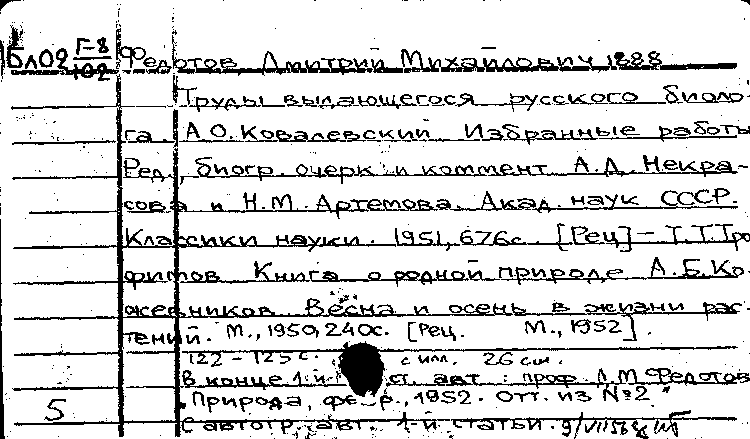 Бл02 Г-8/102 Федотов, Дмитрий Михайлович 1888
Труды выдающегося русского биоло-
га. А.О. Ковалевский Избранные работы
Ред., биогр. очерк и коммент А.Д. Некра-
сова и Н.М. Артемова. Акад. наук СССР.
Классики науки. 1951, 676с. [Рец] - Т.Т. Тро
фимов Книга о родной природе А.Б. Ко-
жевников Весна и осень в жизни рас-
тений. М., 1950, 240с. [Рец. М., 1952].
122 - 125 с. с илл. 26 см.
В конце 1-й ст. авт.: проф. Д.М. Федотов
"Природа, фе р., 1952. Отт. из №2"
5 С автогр. авт. 1-й статьи.